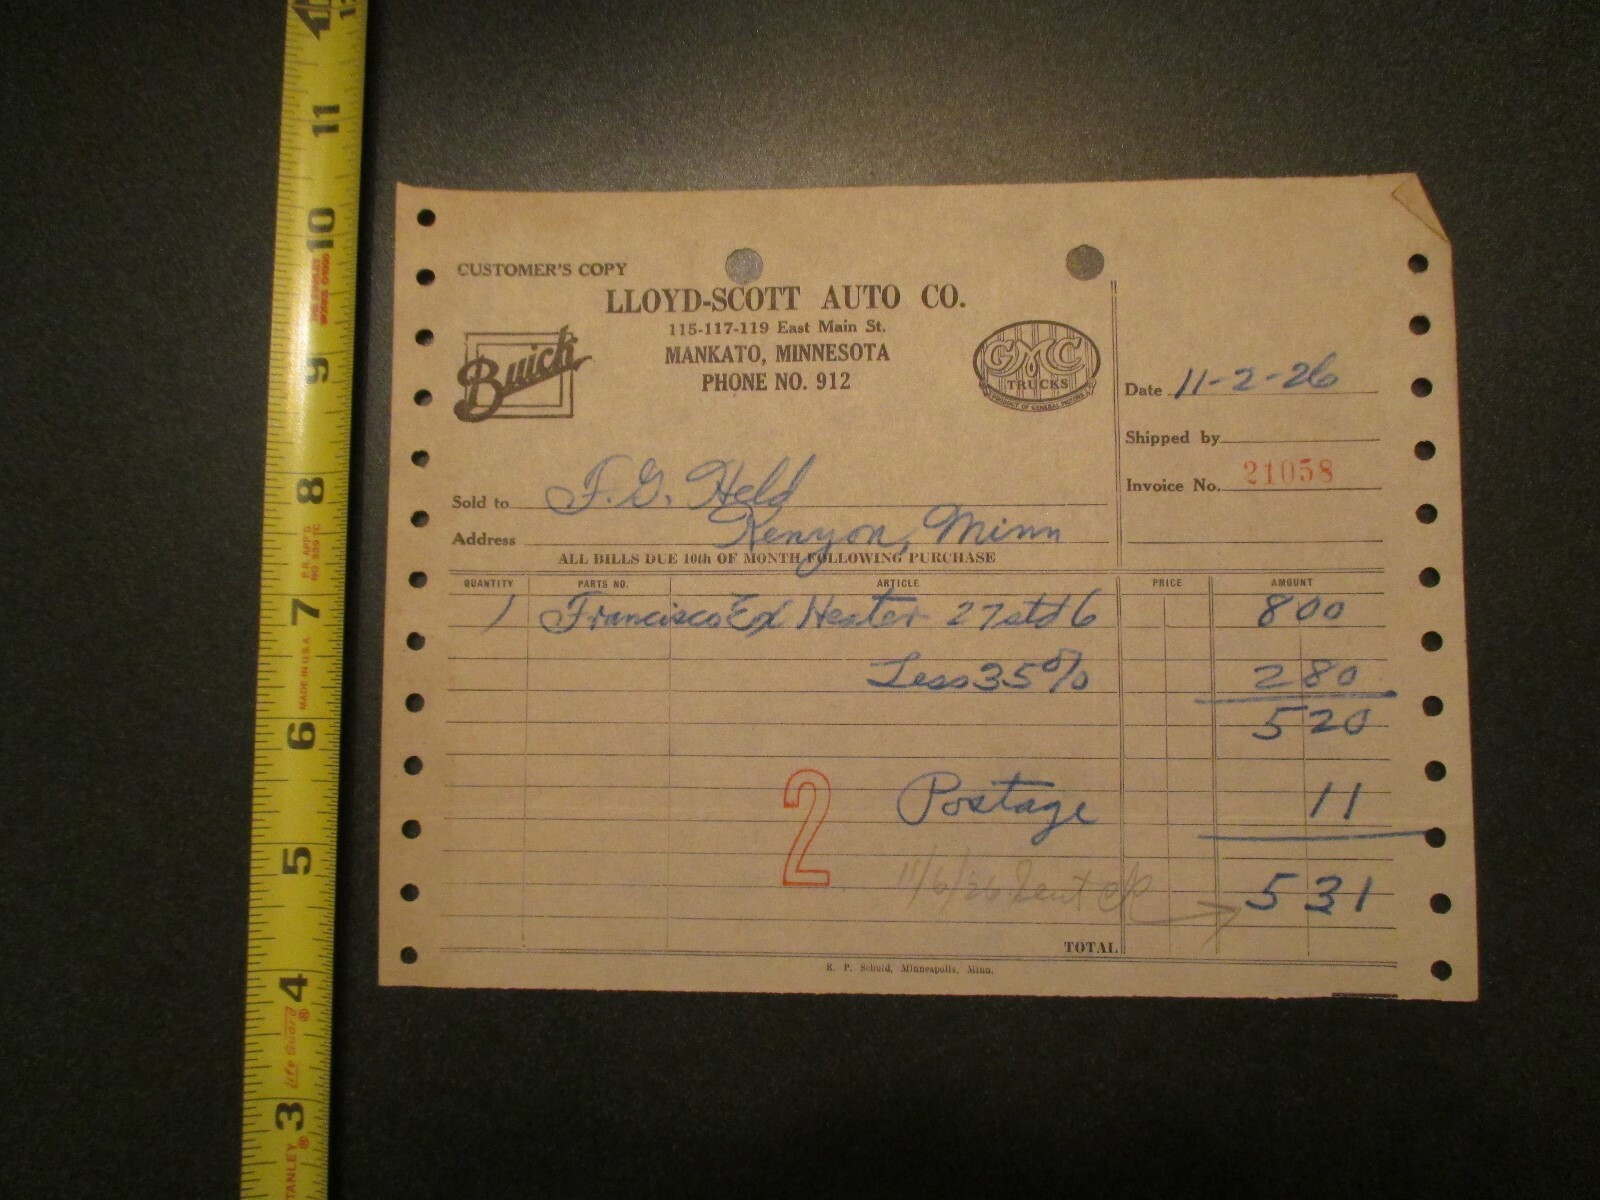 CUSTOMER'S COPY
LLOYD-SCOTT AUTO CO.
115-117-119 East Main St.
MANKATO, MINNESOTA
PHONE NO. 912
Buick
GMC
TRUCKS
PRODUCT OF GENERAL MOTORS
Date 11-2-26
Shipped by
Invoice No. 21058
Sold to F. G. Held
Address Kenyon, Minn
ALL BILLS DUE 10th OF MONTH FOLLOWING PURCHASE
QUANTITY PARTS NO. ARTICLE PRICE AMOUNT
1 Francisco Ex Heater 27 std 6 8 00
Less 35% 2 80
5 20
Postage 11
2
11/6/26 Sent ck 5 31
TOTAL
Minneapolis, Minn.
12
11
10
9
8
7
6
5
4
3
MADE IN U.S.A.
Life Guard®
STANLEY®